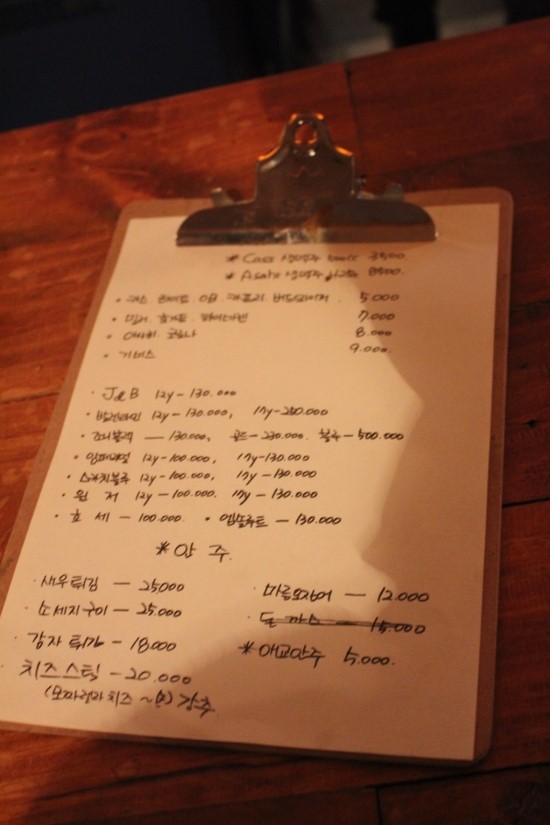 * Cass 생맥주 500cc 3500.
* Asahi 생맥주 8500.
· 카스 라이트 OB 카프리 버드와이저. 5,000
· 밀러. 호가든. 하이네켄 7,000
· 아사히. 코로나 8.000
· 기네스 9.000.
· J&B 12y-130.000
· 발렌타인 12y-130.000, 17y-280.000
· 죠니블랙 — 130.000, 골드-230.000. 블루-500.000
· 임페리얼 12y-100.000, 17y-130.000
· 스카치블루 12y-100.000, 17y-130.000
· 윈 저 12y-100.000. 17y-130.000
· 호세 - 100.000 · 앱솔루트 - 130.000
* 안 주.
· 새우튀김 — 25000
· 소세지구이 — 25.000
· 감자튀김 - 18.000
· 치즈스틱 - 20.000
(모짜렐라치즈 ~) 강추
· 마른오징어 — 12.000
· 돈까스 — 15.000
* 애교안주 5.000.